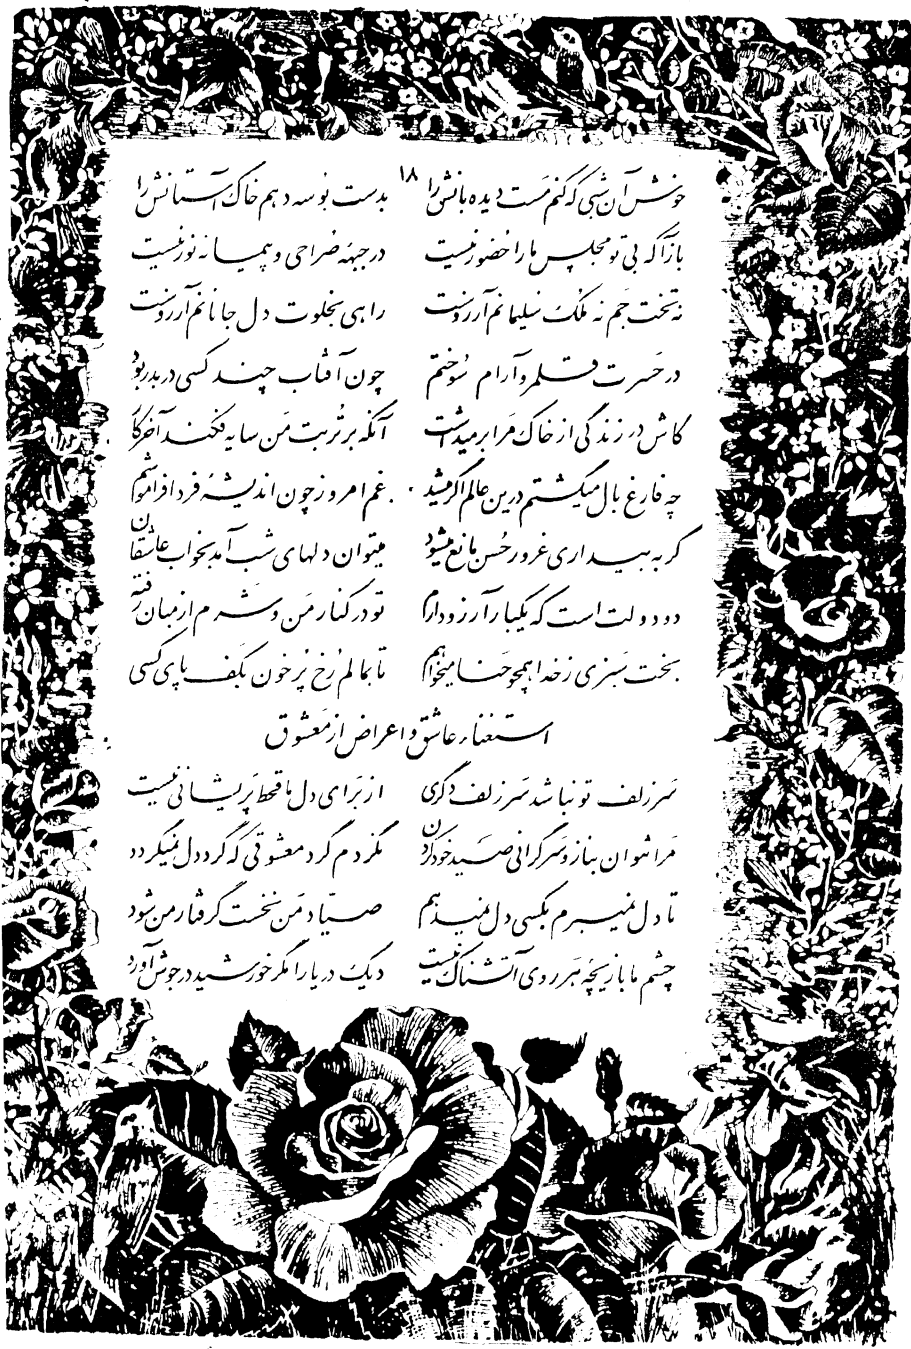 ۱۸
خوش آن شبی که کنم مست دیده بانش را بدست بوسه دهم خاک آستانش را
بازآ که بی تو مجلس ما را حضور نیست در جبههٔ صراحی و پیمانه نور نیست
نه تخت جم نه ملک سلیمانم آرزوست راهی بخلوت دل جانانم آرزوست
در حسرت قلمرو آرام سوختم چون آفتاب چند کسی دربدر بود
کاش در زندگی از خاک مرا برمیداشت آنکه بر تربت من سایه فکند آخر کار
چه فارغ بال میگشتم درین عالم اگر میشد غم امروز چون اندیشهٔ فردا فراموشم
گر به بیداری غرور حسن مانع میشود میتوان دلهای شب آمد بخواب عاشقان
دو دولت است که یکبار آرزو دارم تو در کنار من و شرم از میان رفته
بخت سبزی ز خدا همچو حنا میخواهم تا بمالم رخ پر خون بکف پای کسی
استغناء عاشق و اعراض از معشوق
سر زلف تو نباشد سر زلف دگری از برای دل ما قحط پریشانی نیست
مرا نتوان بناز و سرگرانی صید خود کردن نگردم گرد معشوقی که گرد دل نمیگردد
تا دل نمیبرم بکسی دل نمیدهم صیاد من نخست گرفتار من شود
چشم ما بازیچهٔ هر روی آتشناک نیست دیگ دریا را مگر خورشید در جوش آورد